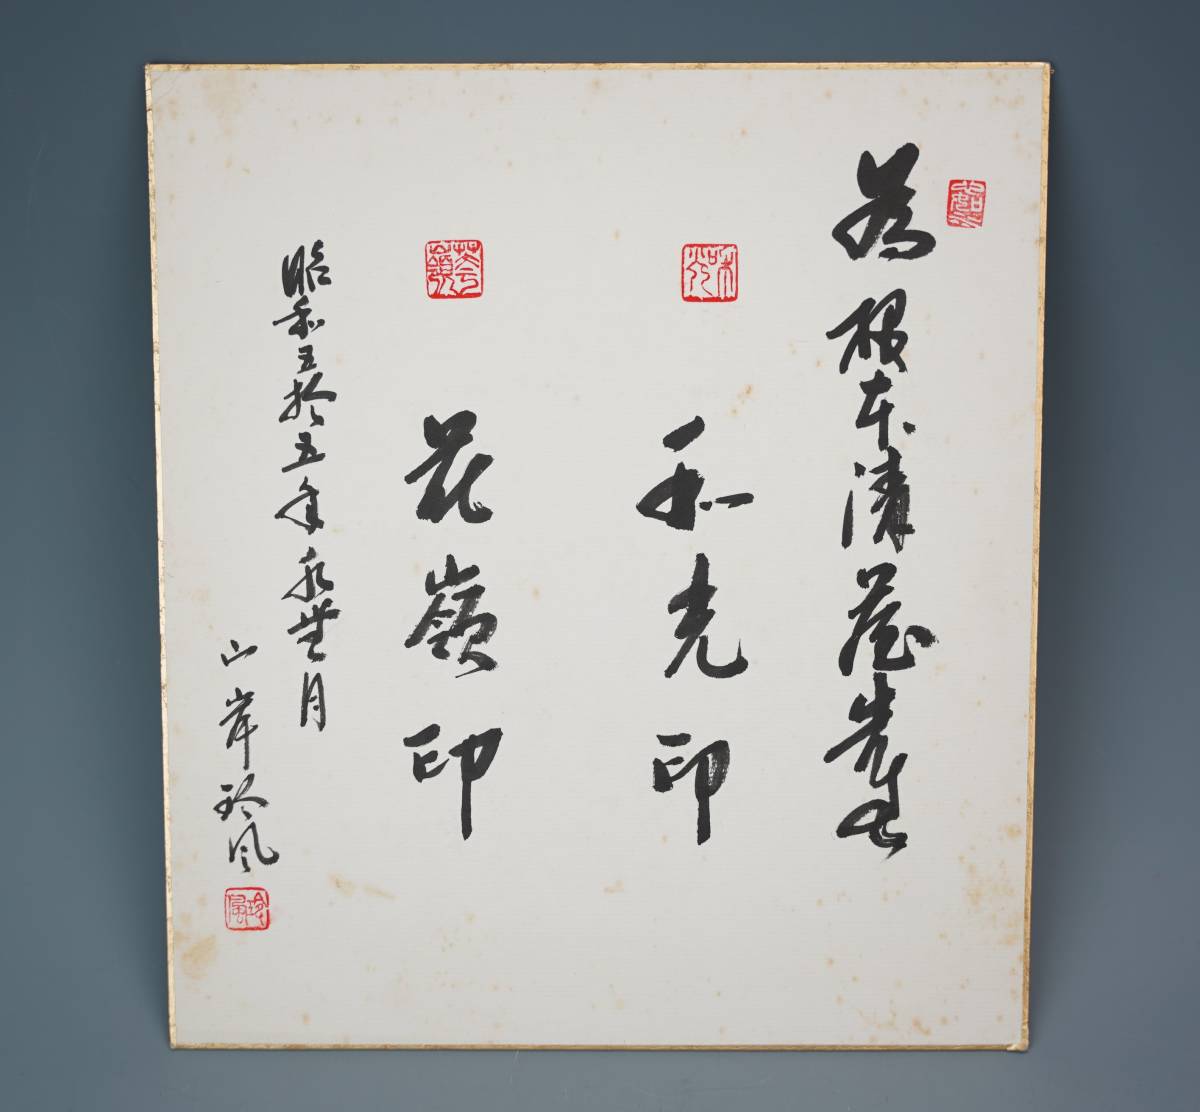 為根本清先生
和光
和光印
花嶺
花嶺印
昭和五拾五年水無月
山岸玲風
玲風